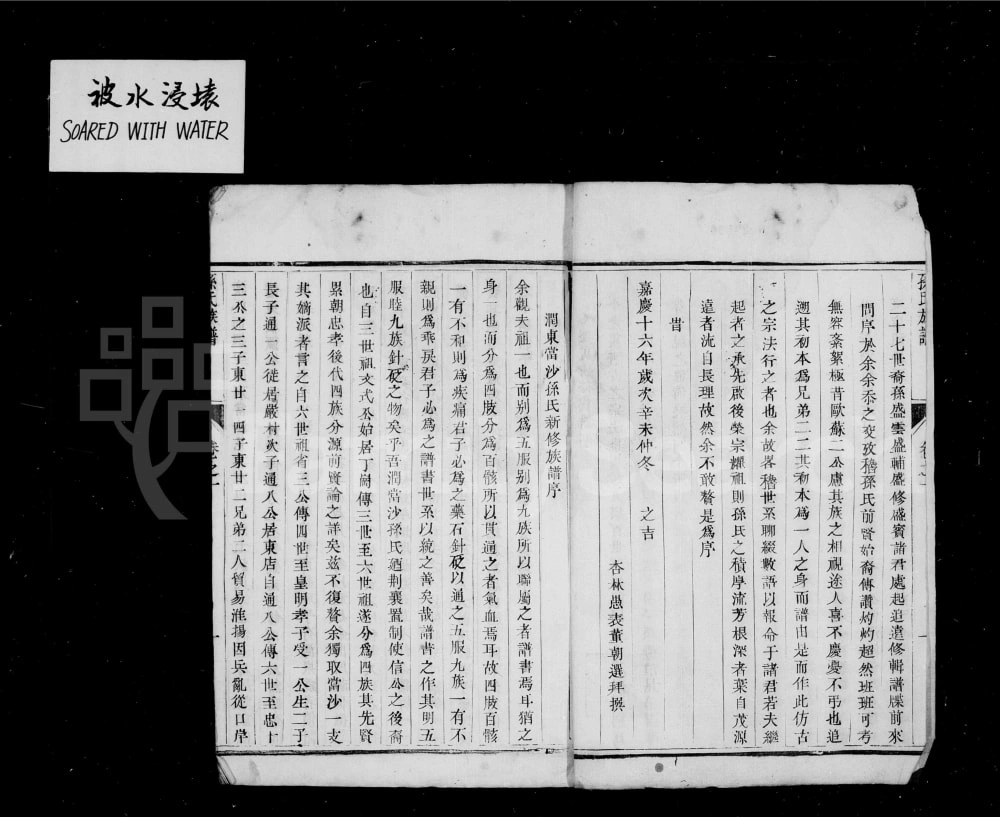 被水浸壊
SOARED WITH WATER
孫氏族譜
卷之一
一
二十七世裔孫盛雲盛補盛修盛賓諸君處起追遠修輯譜牒前來
問序於余余忝之交攷稽孫氏前賢始裔傳讚灼灼超然班班可考
無容紊絮極昔歐蘇二公慮其族之相視途人喜不慶憂不弔也追
遡其初本為兄弟二二其初本為一人之身而譜由是而作此仿古
之宗法行之者也余故畧稽世系聊綴數語以報命于諸君若夫繼
起者之承先啟後榮宗耀祖則孫氏之積厚流芳根深者葉自茂源
遠者流自長理故然余不敢贅是為序
旹
嘉慶十六年歲次辛未仲冬 之吉
杏林愚表董朝選拜撰
潤東當沙孫氏新修族譜序
余觀夫祖一也而别為五服别為九族所以聯屬之者譜書焉耳猶之
身一也而分為四肢分為百骸所以貫通之者氣血焉耳故四肢百骸
一有不和則為疾痛君子必為之藥石針砭以通之五服九族一有不
親則為乖戾君子必為之譜書世系以統之善矣哉譜書之作其明五
服睦九族針砭之物矣乎吾潤當沙孫氏廼荆襄置制使信公之後裔
也自三世祖文式公始居丁崗傳三世至六世祖遂分為四族其先賢
累朝忠孝後代四族分源前賢論之詳矣茲不復贅余獨取當沙一支
其嫡派者言之自六世祖省三公傳四世至皇明孝子受一公生二子
長子通一公徙居嚴村次子通八公居東店自通八公傳六世至忠十
三公之三子東廿一四子東廿二兄弟二人貿易淮揚因兵亂從口岸
孫氏族譜
卷之一
一